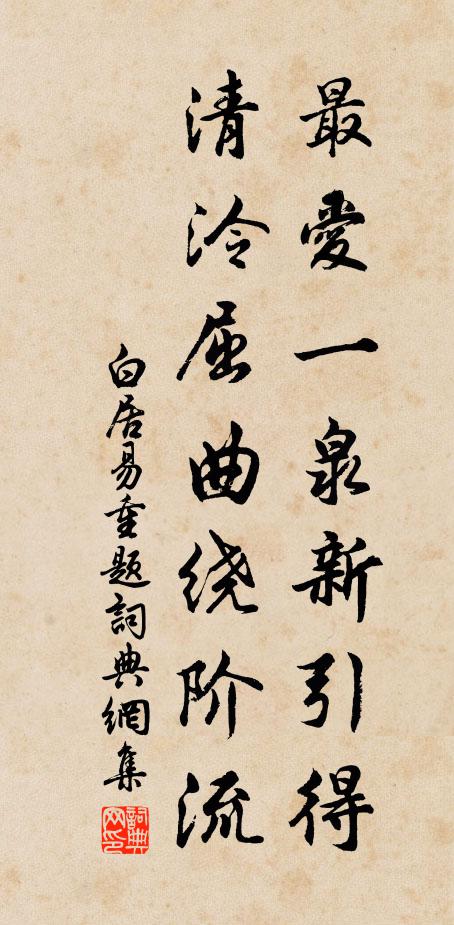 最愛一泉新引得
清泠屈曲绕阶流
白居易重题詞典網集
詞典网印